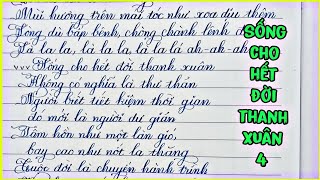 Mùi hương trên mái tóc như xoa dịu thêm
Lòng dù bấp bênh, chông chênh lênh đ
Là la la, là la la, là la lá ah-ah-ah
Sống cho hết đời thanh xuân
Không có nghĩa là thư thán
Người biết tiết kiệm thời gian
đó mới là người dư giản
Tâm hồn như một làn gió,
bay cao như nốt la thăng
Cuộc đời là chuyến hành trình
SỐNG
CHO
HẾT
ĐỜI
THANH
XUÂN
4